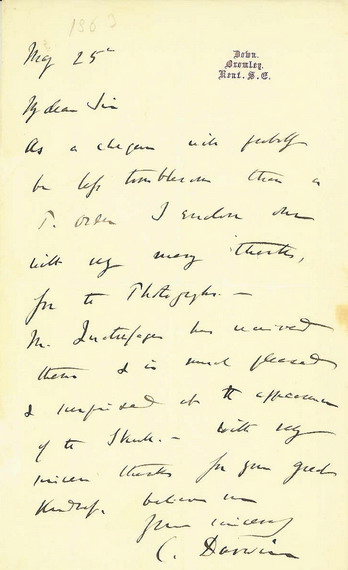 1863
Down.
Bromley.
Kent. S.E.
May 25th
My dear Sir
As a cheque will probably
be less troublesome than a
P. order I enclose one
with my many thanks,
for the Photographs. —
M. Quatrefages has received
them & is much pleased
& surprised at the appearance
of the Skull. — With my
sincere thanks for your great
kindness, believe me
Yours sincerely
C. Darwin